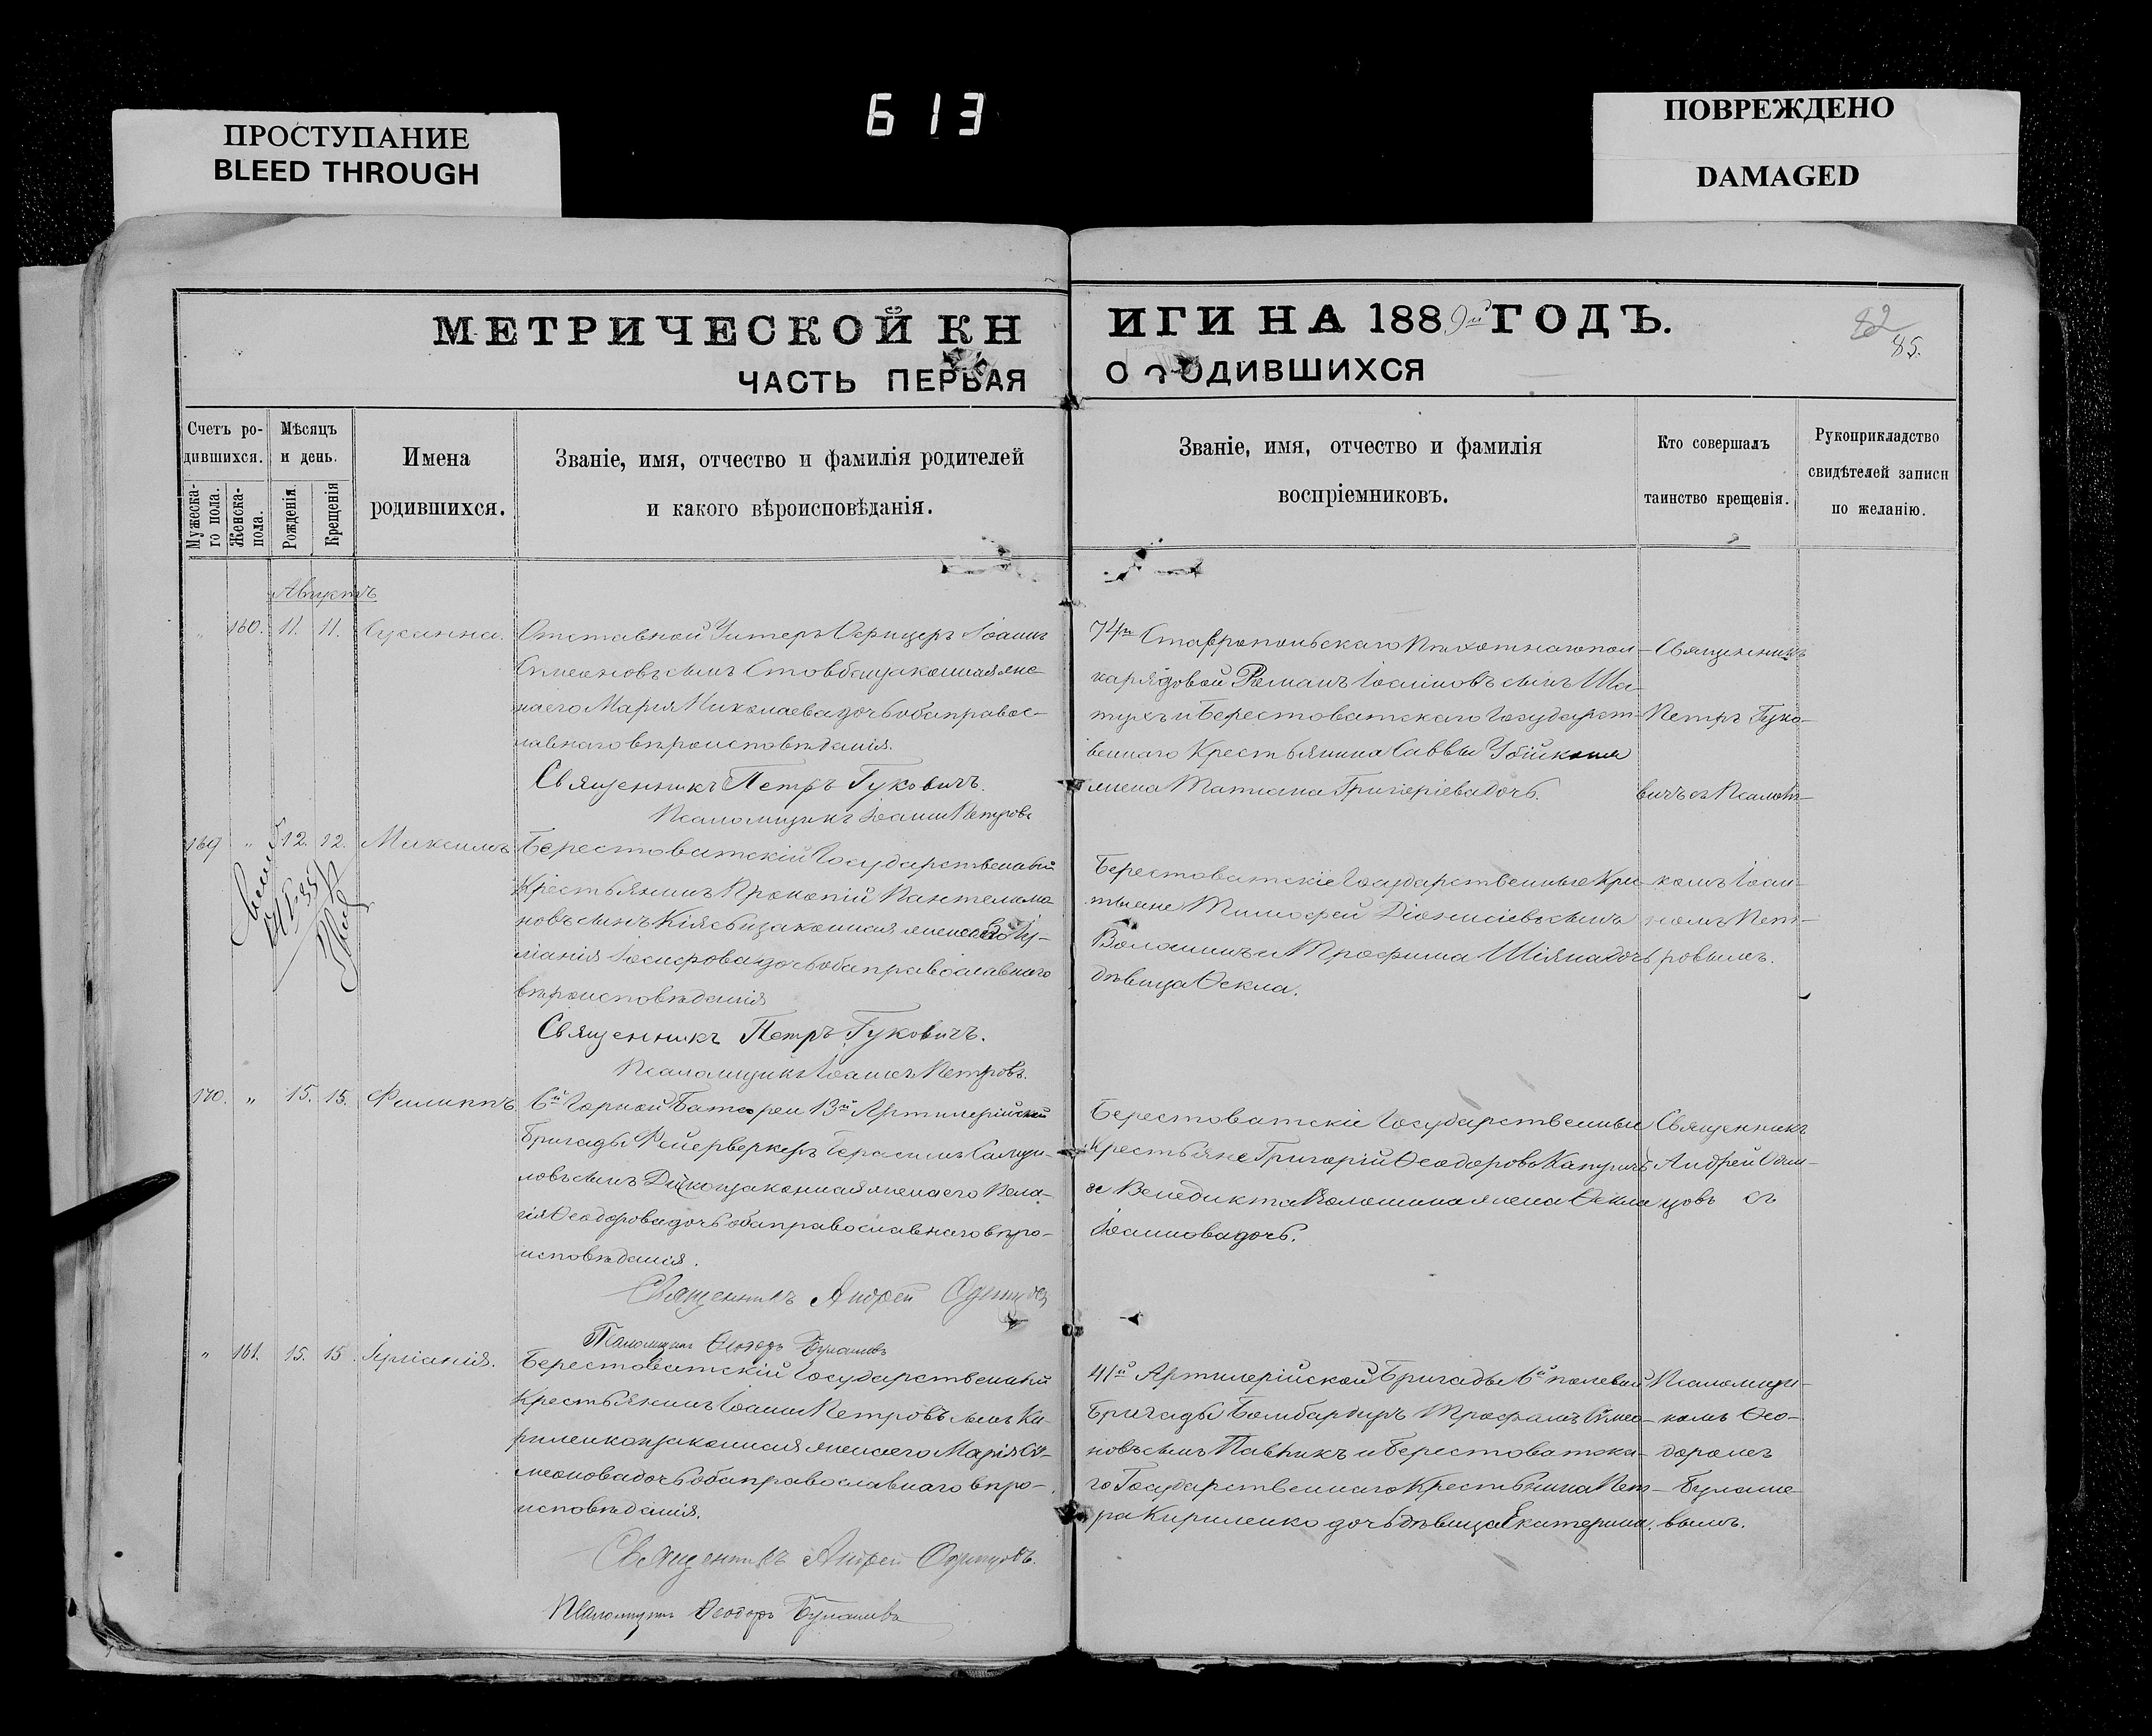 613
ПРОСТУПАНИЕ
BLEED THROUGH
ПОВРЕЖДЕНО
DAMAGED
МЕТРИЧЕСКОЙ КНИГИ НА 1889й ГОДЪ.
ЧАСТЬ ПЕРВАЯ О РОДИВШИХСЯ
82
85.
Счетъ ро-
дившихся.
Мужеска-
го пола.
Женска-
пола.
Мѣсяцъ
и день.
Рожденія.
Крещенія
Имена
родившихся.
Званіе, имя, отчество и фамилія родителей
и какого вѣроисповѣданія.
Званіе, имя, отчество и фамилія
воспріемниковъ.
Кто совершалъ
таинство крещенія.
Рукоприкладство
свидѣтелей записи
по желанію.
Августъ
" 160. 11. 11. Сусанна.
Отставной Унтеръ Офицеръ Іоаннъ
Симеоновъ сынъ и законная же-
на его Марія Николаева дочь оба правос-
лавнаго вѣроисповѣданія.
Священникъ Петръ Гуковичъ.
Псаломщикъ Іоаннъ Петровъ
74го Ставропольскаго Пѣхотнаго пол-
ка рядовой Романъ Іоанновъ сынъ Ша-
и Берестоватскаго Государст-
веннаго Крестьянина Саввы
жена Татіана Григоріева дочь.
Священникъ
Петръ Гуко-
вичъ съ Псалом-
169 " 12. 12. Максимъ
Берестоватскій Государственный
Крестьянинъ Прокопій Пантелимо
новъ сынъ и законная жена его Іу-
ліанія Іосифова дочь оба православнаго
вѣроисповѣданія
Священникъ Петръ Гуковичъ.
Псаломщикъ Іоаннъ Петровъ.
Берестоватскіе Государственные Кре-
стьяне Тимофей Діонисіевъ сынъ
Волошинъ и Трофима Шіяна дочь
дѣвица Ѳекла.
комъ Іоан-
номъ Пет-
ровымъ.
170. " 15. 15. Филиппъ
6й Горной Батареи 13й Артилерійской
Бригады Фейерверкеръ Герасимъ Самуи-
ловъ сынъ и законная жена его Пела-
гія Ѳеодорова дочь оба православнаго вѣро-
исповѣданія.
Священникъ Андрей Одинцовъ
Псаломщикъ Ѳеодоръ Булашевъ
Берестоватскіе Государственные
Крестьяне Григорій Ѳеодоровъ
и Венедикта Волошина жена Ѳекла
Іоаннова дочь.
Священникъ
Андрей Один-
цовъ съ
" 161. 15. 15. Іуліанія.
Берестоватскій Государственный
Крестьянинъ Іоаннъ Петровъ сынъ Ки-
риленко и законная жена его Марія Си-
меонова дочь оба православнаго вѣро-
исповѣданія.
Священникъ Андрей Одинцовъ.
Псаломщикъ Ѳеодоръ Булашевъ
41й Артилерійской Бригады 6й полевой
Бригады Бомбардиръ Трофимъ Симео-
новъ сынъ Павликъ и Берестоватска-
го Государственнаго Крестьянина Пет-
ра Кириленко дочь дѣвица Екатерина.
Псаломщи-
комъ Ѳео-
доромъ
Булаше
вымъ.